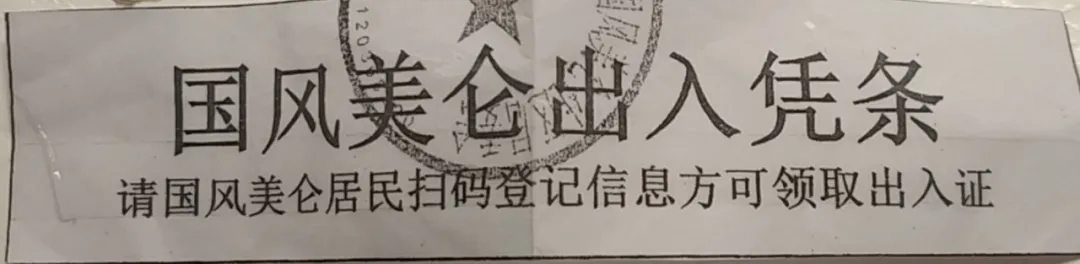 国风美仑出入凭条
请国风美仑居民扫码登记信息方可领取出入证